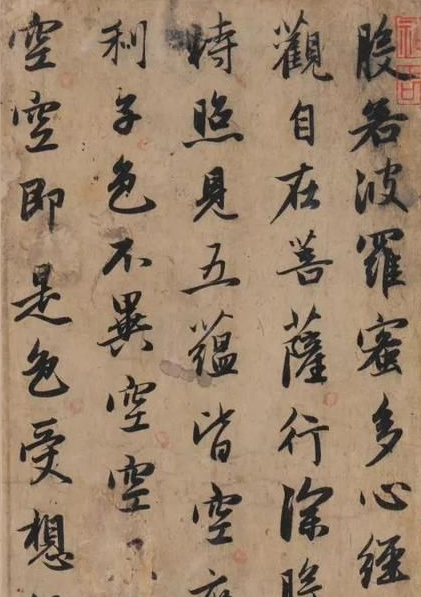 般若波羅蜜多心經
觀自在菩薩行深般
時照見五蘊皆空
利子色不異空空
空空即是色受想